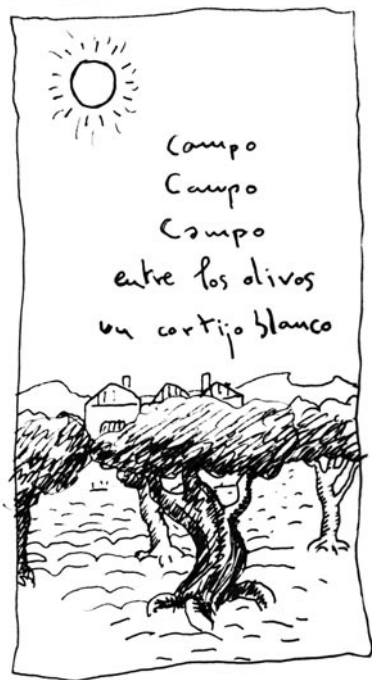 Campo
Campo
Campo
entre los olivos
un cortijo blanco